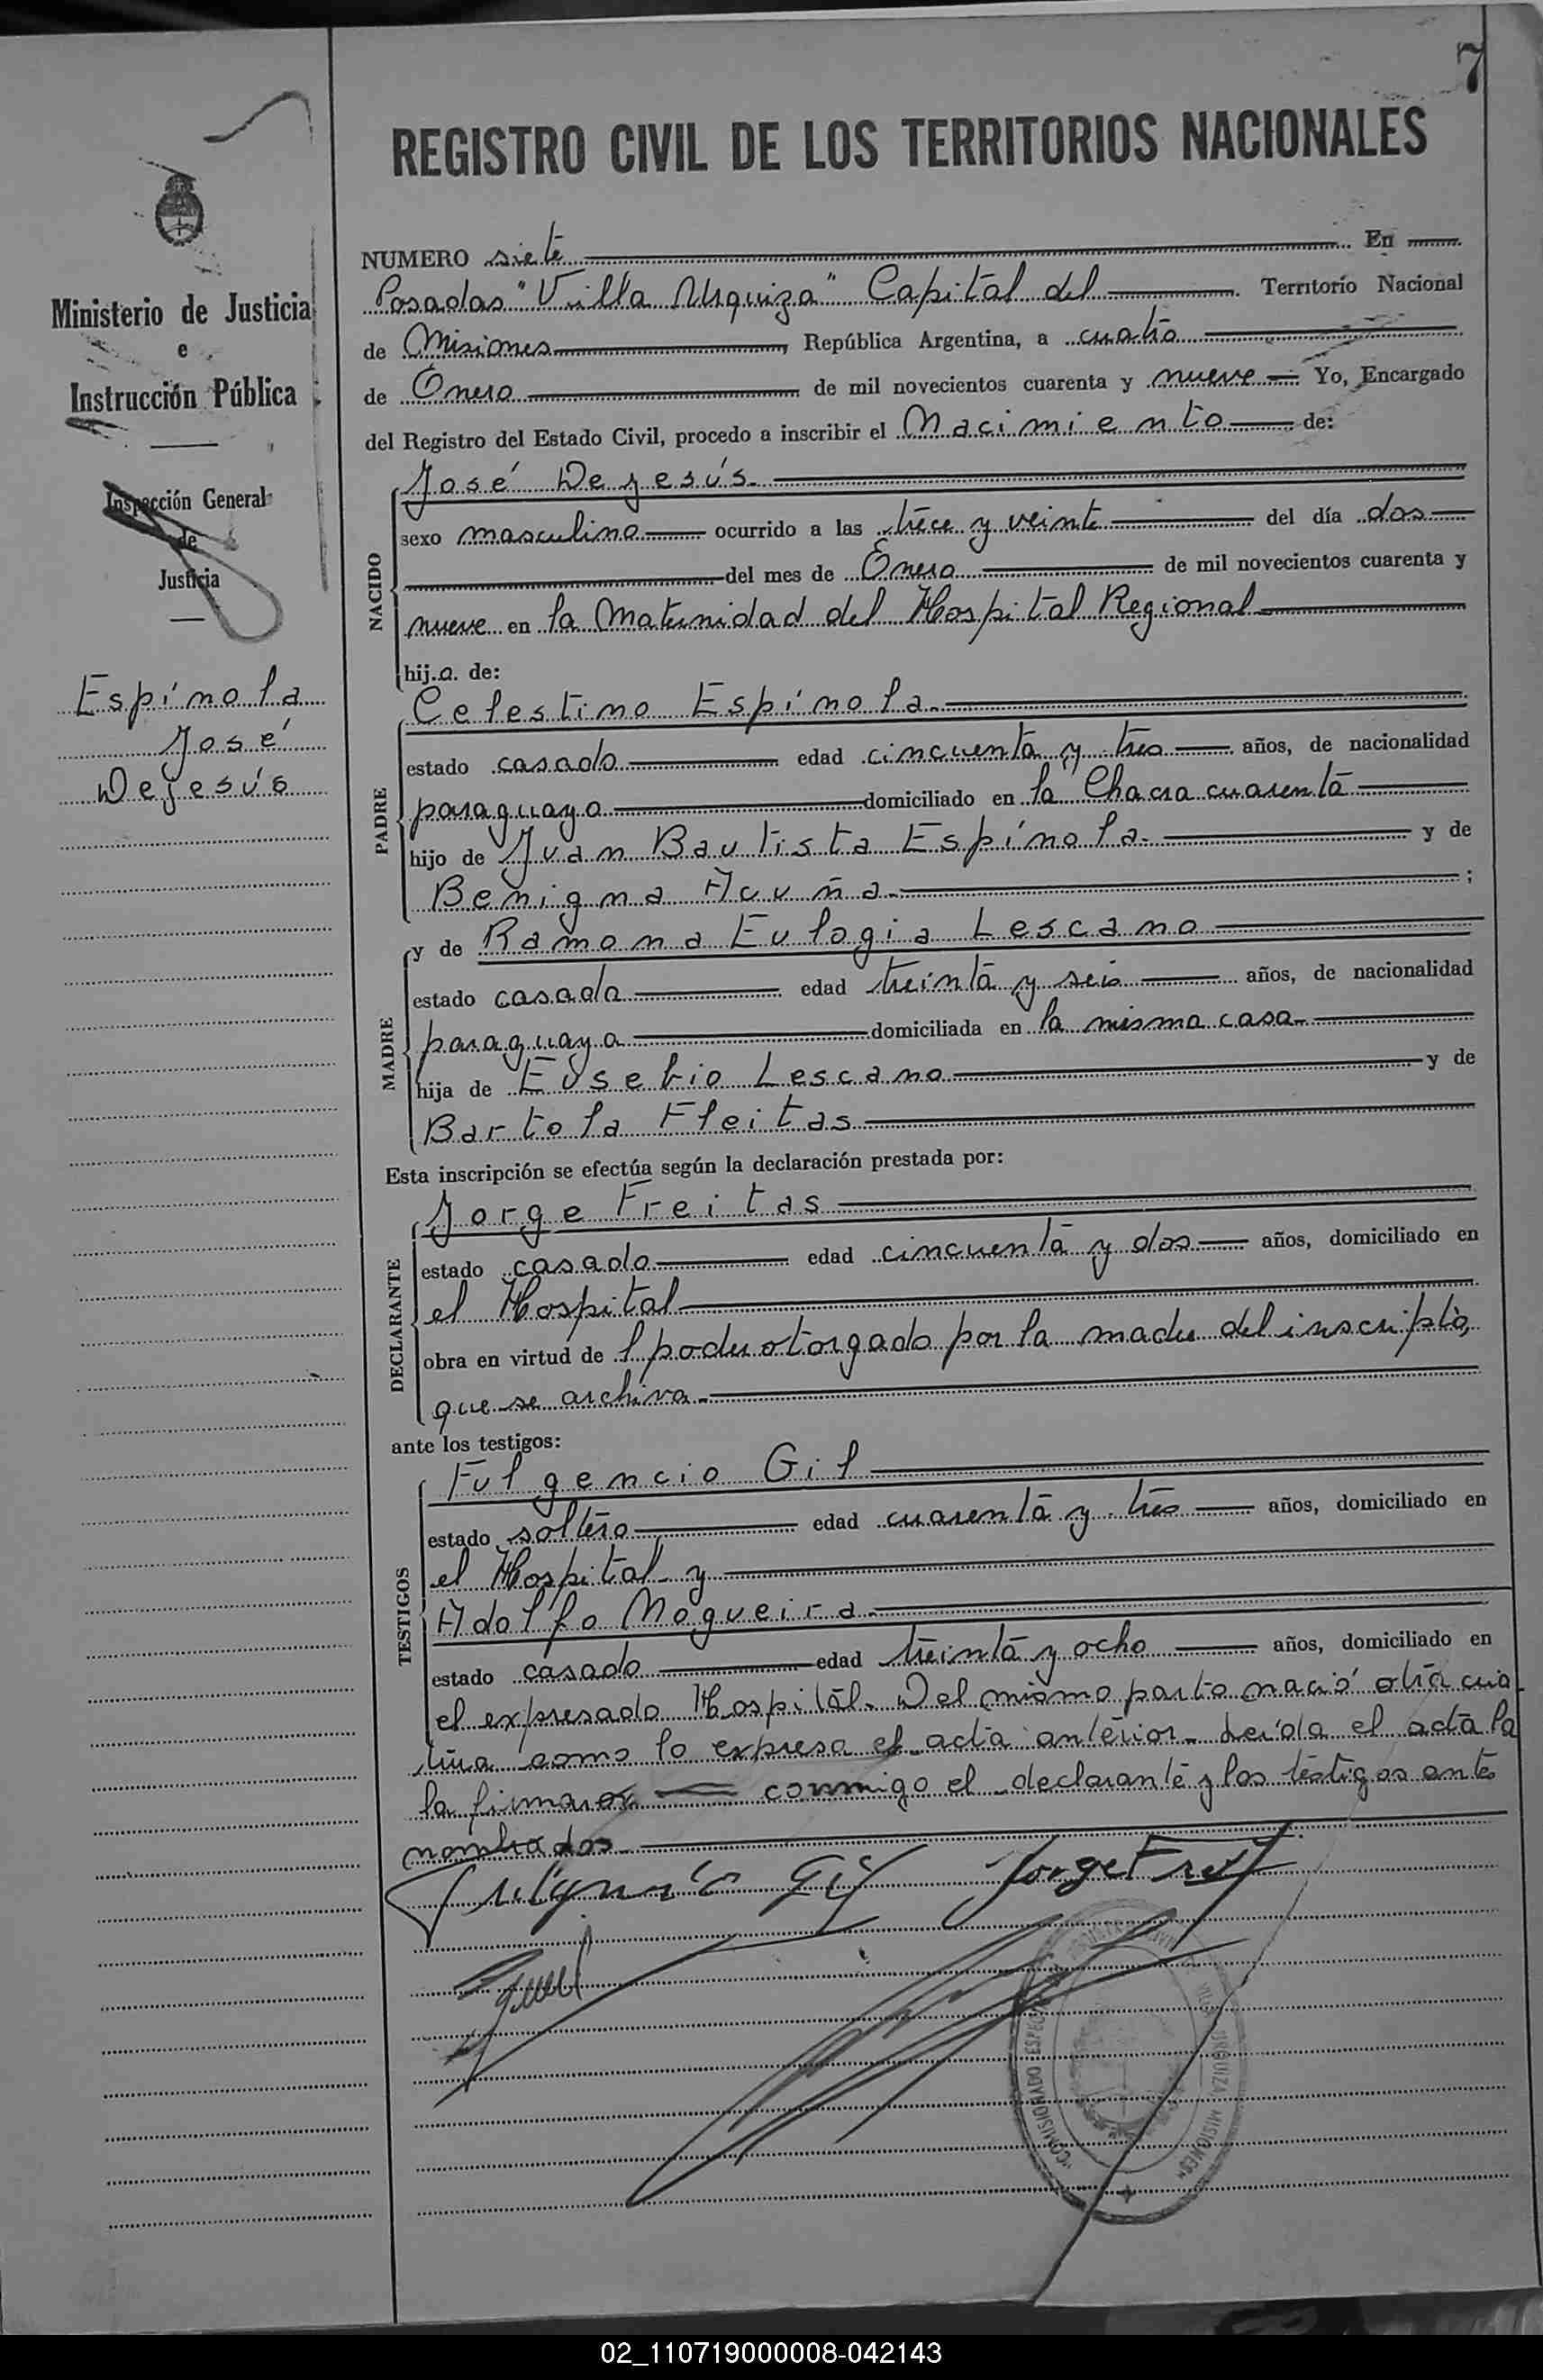 7
REGISTRO CIVIL DE LOS TERRITORIOS NACIONALES
Ministerio de Justicia
e
Instrucción Pública
Inspección General
de
Justicia
Espínola
José
Dejesús
NUMERO siete En
Posadas "Villa Urquiza" Capital del Territorio Nacional
de Misiones, República Argentina, a cuatro
de Enero de mil novecientos cuarenta y nueve Yo, Encargado
del Registro del Estado Civil, procedo a inscribir el Nacimiento de:
NACIDO
José Dejesús.
sexo masculino ocurrido a las trece y veinte del día dos
del mes de Enero de mil novecientos cuarenta y
nueve en la Maternidad del Hospital Regional
hij.o. de:
PADRE
Celestino Espínola.
estado casado edad cincuenta y tres años, de nacionalidad
paraguaya domiciliado en la Chacra cuarenta
hijo de Juan Bautista Espínola. y de
Benigna Acuña. ;
MADRE
y de Ramona Eulogia Lescano
estado casada edad treinta y seis años, de nacionalidad
paraguaya domiciliada en la misma casa.
hija de Eusebio Lescano y de
Bartola Fleitas
Esta inscripción se efectúa según la declaración prestada por:
DECLARANTE
Jorge Freitas
estado casado edad cincuenta y dos años, domiciliado en
el Hospital
obra en virtud de l poder otorgado por la madre del inscripto,
que se archiva.
ante los testigos:
TESTIGOS
Fulgencio Gil
estado soltero edad cuarenta y tres años, domiciliado en
el Hospital y
Adolfo Nogueira.
estado casado edad treinta y ocho años, domiciliado en
el expresado Hospital. Del mismo parto nació otra cria-
tura como lo expresa el acta anterior. Leída el acta la
la firmaron conmigo el declarante y los testigos ante
nombrados
Fulgencio Gil Jorge Freit
COMISIONADO VILLA URQUIZA MISIONES
02_110719000008-042143